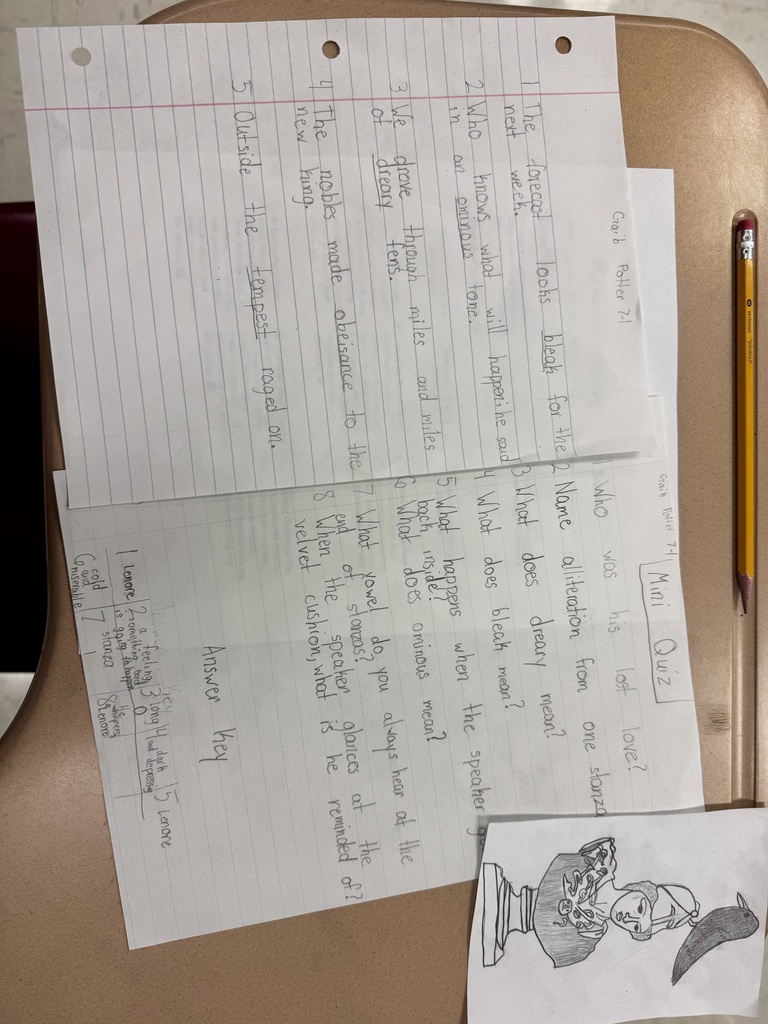 Potter 7-1
1 The forecast looks bleak for the
next week.
2 Who knows what will happen; he said
in an ominous tone.
3 We drove through miles and miles
of dreary fens.
4 The nobles made obeisance to the
new king.
5 Outside the tempest raged on.
Potter 7-1
Mini Quiz
1 Who was his lost love?
2 Name alliteration from one stanza
3 What does dreary mean?
4 What does bleak mean?
5 What happens when the speaker
back inside?
6 What does ominous mean?
7 What vowel do you always hear at the
end of stanzas?
8 When the speaker glances at the
velvet cushion, what is he reminded of?
Answer Key
1 Lenore
2 a feeling
something bad
is going to happen
3 long
O
4 dark
and depressing
5 Lenore
6 cold
and
miserable
7 stanza
8 He
whispers
Lenore